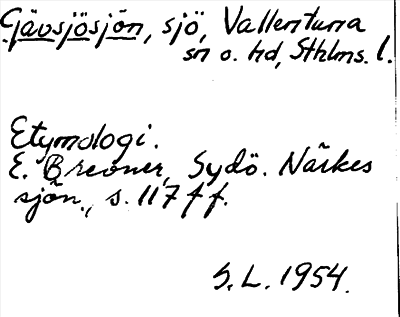 Gävsjösjön, sjö, Vallentuna
sn o. hd, Sthlms. l.
Etymologi.
E. Brevner, Sydö. Närkes
sjön., s. 117 ff.
S.L. 1954.